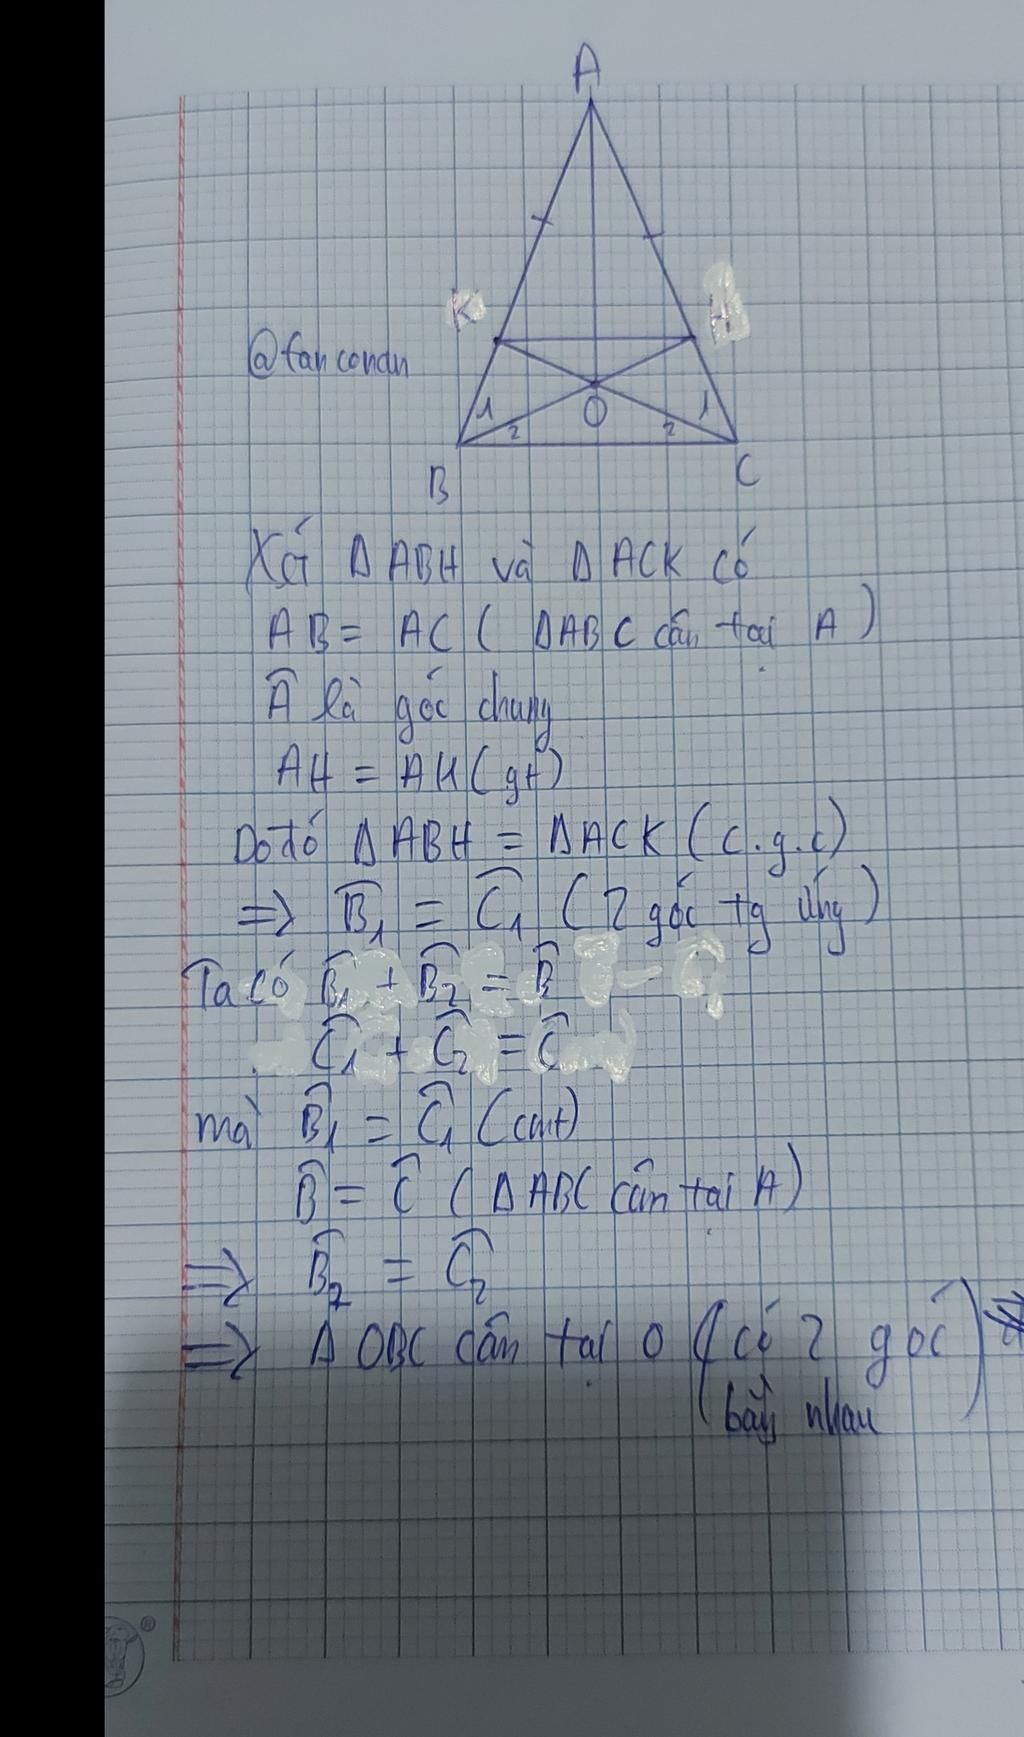 A
K H
@fancondn
1 O 1
2 2
B C
Xét ΔABH và ΔACK có
AB = AC (ΔABC cân tại A)
Â là góc chung
AH = AK (gt)
Do đó ΔABH = ΔACK (c.g.c)
=> B̂₁ = Ĉ₁ (2 góc tg ứng)
Ta có B̂₁ + B̂₂ = B̂
Ĉ₁ + Ĉ₂ = Ĉ
mà B̂₁ = Ĉ₁ (cmt)
B̂ = Ĉ (ΔABC cân tại A)
=> B̂₂ = Ĉ₂
=> ΔOBC cân tại O (có 2 góc
bằng nhau)